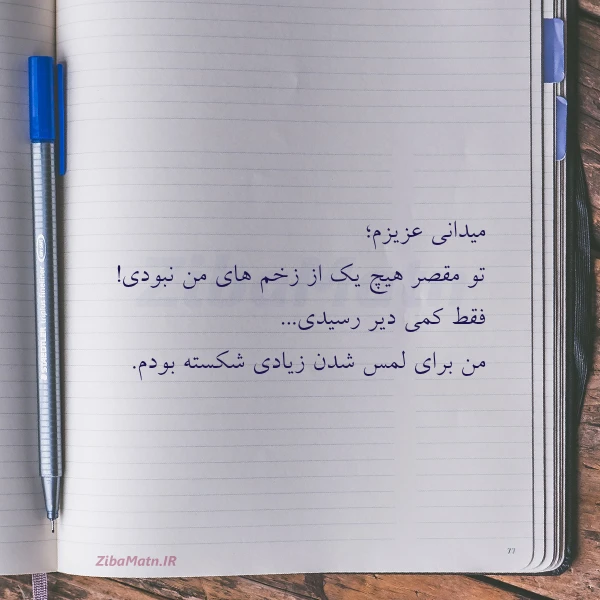 میدانی عزیزم؛
تو مقصر هیچ یک از زخم های من نبودی!
فقط کمی دیر رسیدی...
من برای لمس شدن زیادی شکسته بودم.
ZibaMatn.IR